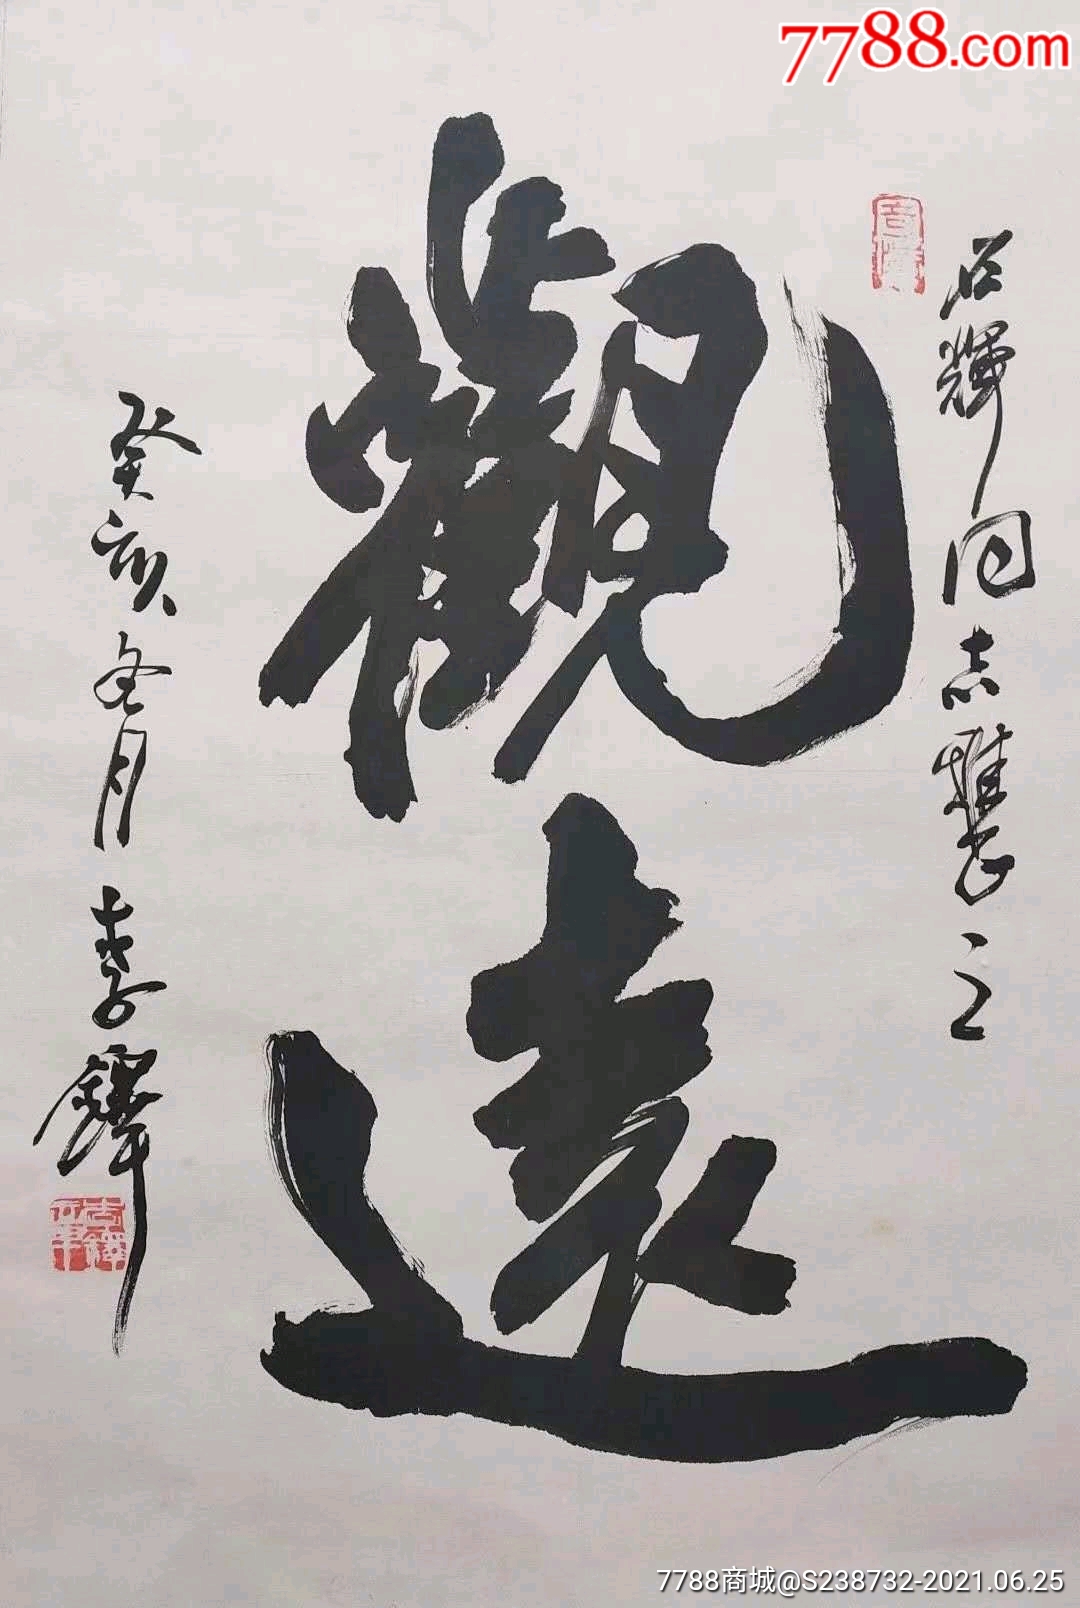 7788.com
觀遠
石輝同志雅屬正之
癸亥冬月李鐸
7788商城@S238732-2021.06.25